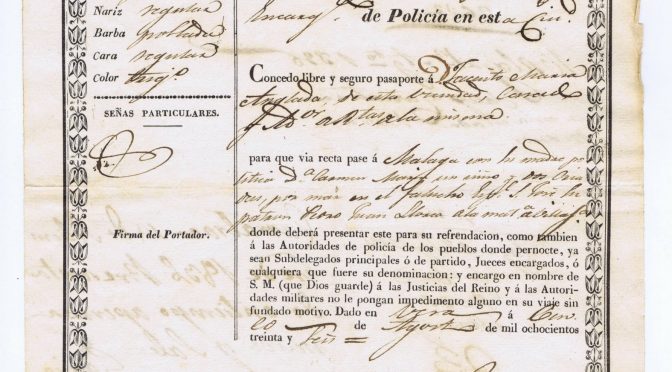 Nariz regular
Barba poblada
Cara regular
Color trigº
SEÑAS PARTICULARES.
Firma del Portador.
de Policía en esta Ciu.
Concedo libre y seguro pasaporte á Jacinto Maria
Anglada, de esta vecindad, casado
para que via recta pase á Malaga con su madre po
litica Dª Carmen un niño y dos Cria
das, por mar en el falucho Espl. S. José su
patron Pedro Juan
donde deberá presentar este para su refrendacion, como tambien
á las Autoridades de policía de los pueblos donde pernocte, ya
sean Subdelegados principales ó de partido, Jueces encargados, ó
cualquiera que fuere su denominacion: y encargo en nombre de
S. M. (que Dios guarde) á las Justicias del Reino y á las Autori-
dades militares no le pongan impedimento alguno en su viaje sin
fundado motivo. Dado en Vera á
de Agosto de mil ochocientos
treinta y seis